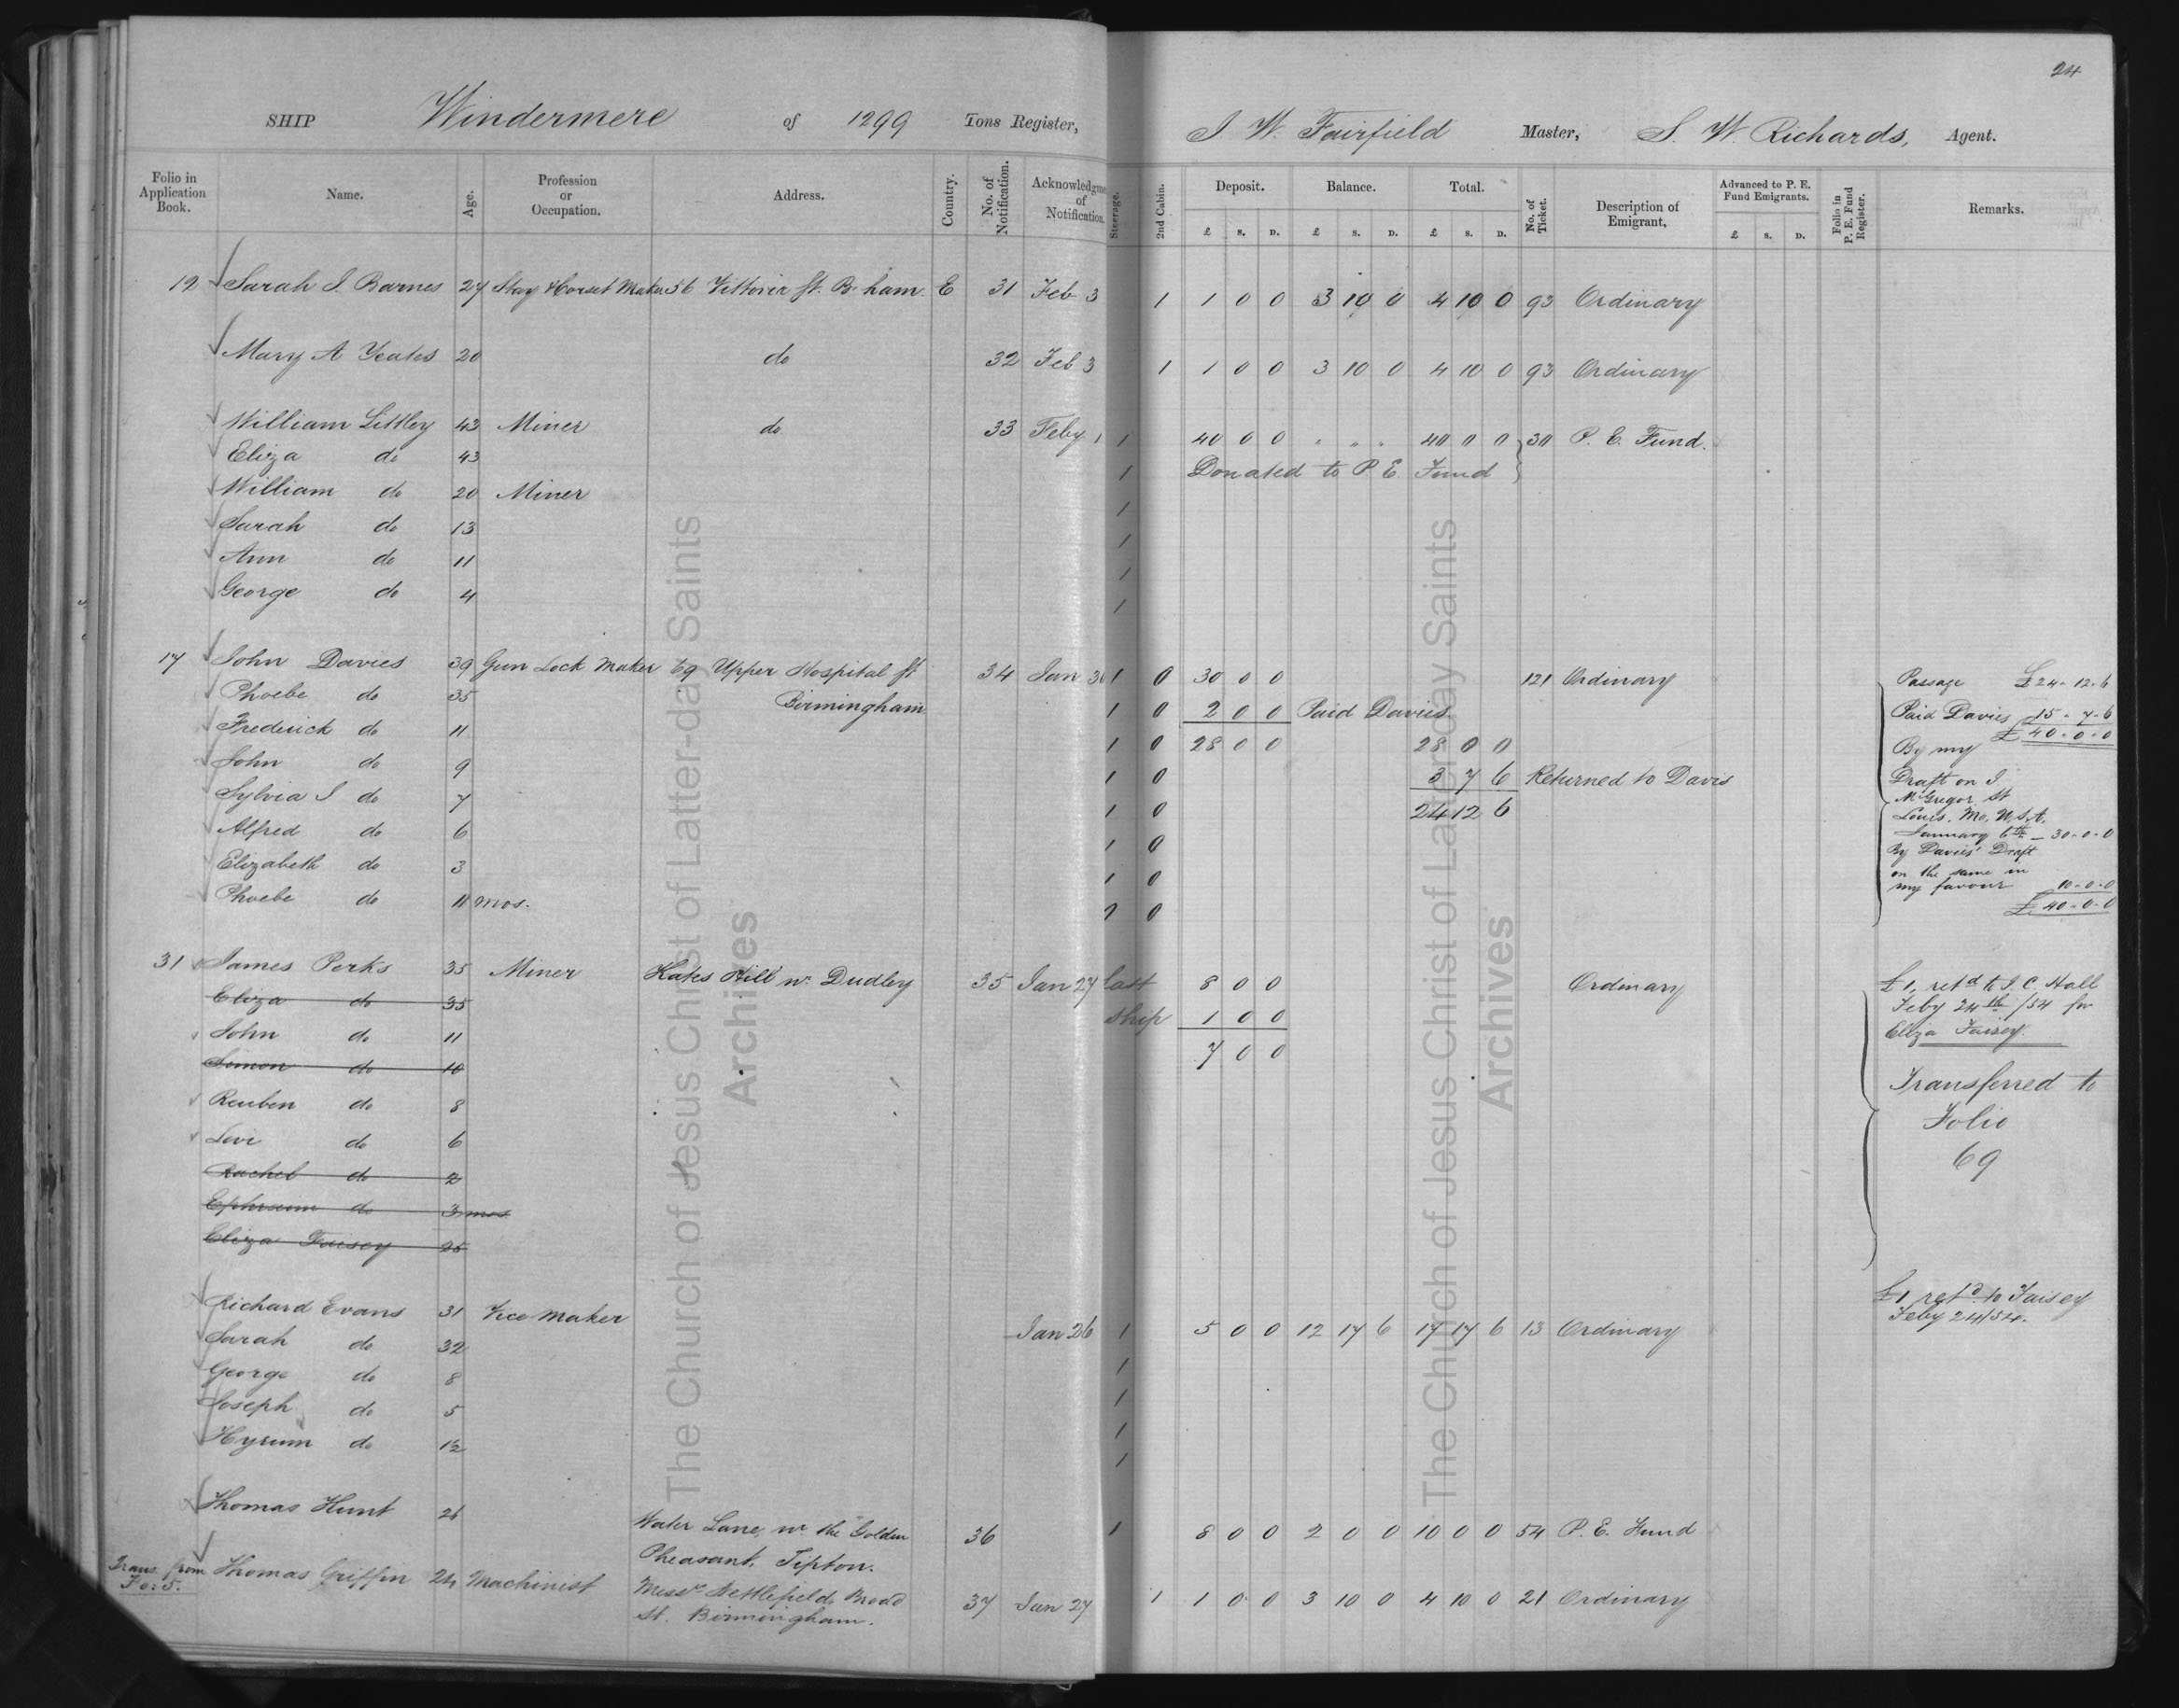 24
SHIP Windermere of 1299 Tons Register, J. W. Fairfield Master, S. W. Richards, Agent.
Folio in Application Book. Name. Age. Profession or Occupation. Address. Country. No. of Notification. Acknowledgme of Notification. Steerage. 2nd Cabin. Deposit. Balance. Total. No. of Ticket. Description of Emigrant. Advanced to P. E. Fund Emigrants. Folio in P. E. Fund Register. Remarks.
£ S. D. £ S. D. £ S. D. £ S. D.
12 Sarah J Barnes 27 Stay & Corset Maker 56 Vittoria St. B'ham. E 31 Feb 3 1 1 0 0 3 10 0 4 10 0 93 Ordinary
Mary A Yeates 20 do 32 Feb 3 1 1 0 0 3 10 0 4 10 0 93 Ordinary
William Littley 43 Miner do 33 Feby 1 1 40 0 0 " " " 40 0 0 30 P. E. Fund.
Eliza do 43 1 Donated to P. E. Fund
William do 20 Miner 1
Sarah do 13 1
Ann do 11 1
George do 4 1
17 John Davies 39 Gun Lock Maker 69 Upper Hospital St 34 Jan 30 1 0 30 0 0 121 Ordinary Passage £24-12-6
Phoebe do 35 Birmingham 1 0 2 0 0 Paid Davies. Paid Davies 15-7-6
£40-0-0
Frederick do 11 1 0 28 0 0 28 0 0 By my
John do 9 1 0 3 7 6 Returned to Davis Draft on J.
McGregor St
Sylvia J do 7 1 0 24 12 6 Louis, Mo, U.S.A.
Alfred do 6 1 0 January 6th - 30-0-0
By Davies' Draft
Elizabeth do 3 1 0 on the same in
my favour 10-0-0
Phoebe do 11 mos. 1 0 £40-0-0
31 James Perks 35 Miner Kates Hill nr. Dudley 35 Jan 27 last 8 0 0 Ordinary £1, retd to J. C. Hall
Eliza do 35 ship 1 0 0 Feby 24th /54 for
John do 11 7 0 0 Eliza Faisey.
Simon do 10 Transferred to
Reuben do 8 Folio
Levi do 6 69
Rachel do 2
Ephraim do 3 mos
Eliza Faisey 25
£1 retd to Faisey
Feby 24/54.
Richard Evans 31 Vice Maker Jan 26 1 5 0 0 12 17 6 17 17 6 13 Ordinary
Sarah do 32 1
George do 8 1
Joseph do 5 1
Hyrum do 1½ 1
Thomas Hunt 26 Water Lane, nr. the "Golden 36 1 8 0 0 2 0 0 10 0 0 54 P. E. Fund
Pheasant, Tipton.
Trans. from Fo: 5. Thomas Griffin 24 Machinist Messrs. Nettlefield, Broad 37 Jan 27 1 1 0 0 3 10 0 4 10 0 21 Ordinary
St. Birmingham.
The Church of Jesus Christ of Latter-day Saints
Archives
The Church of Jesus Christ of Latter-day Saints
Archives